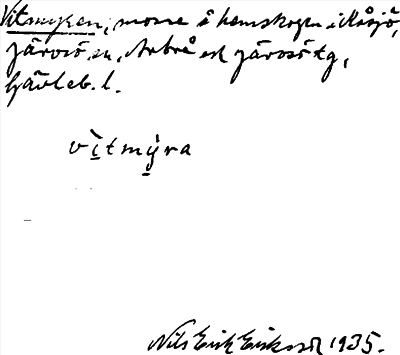 Vitmyran, mosse å hemskogen i Nåsjö,
Järvsö sn, Arbrå och Järvsö tg,
Gävleb. l.
vi̲tmy̲ra
Nils Erik Eriksson 1935.